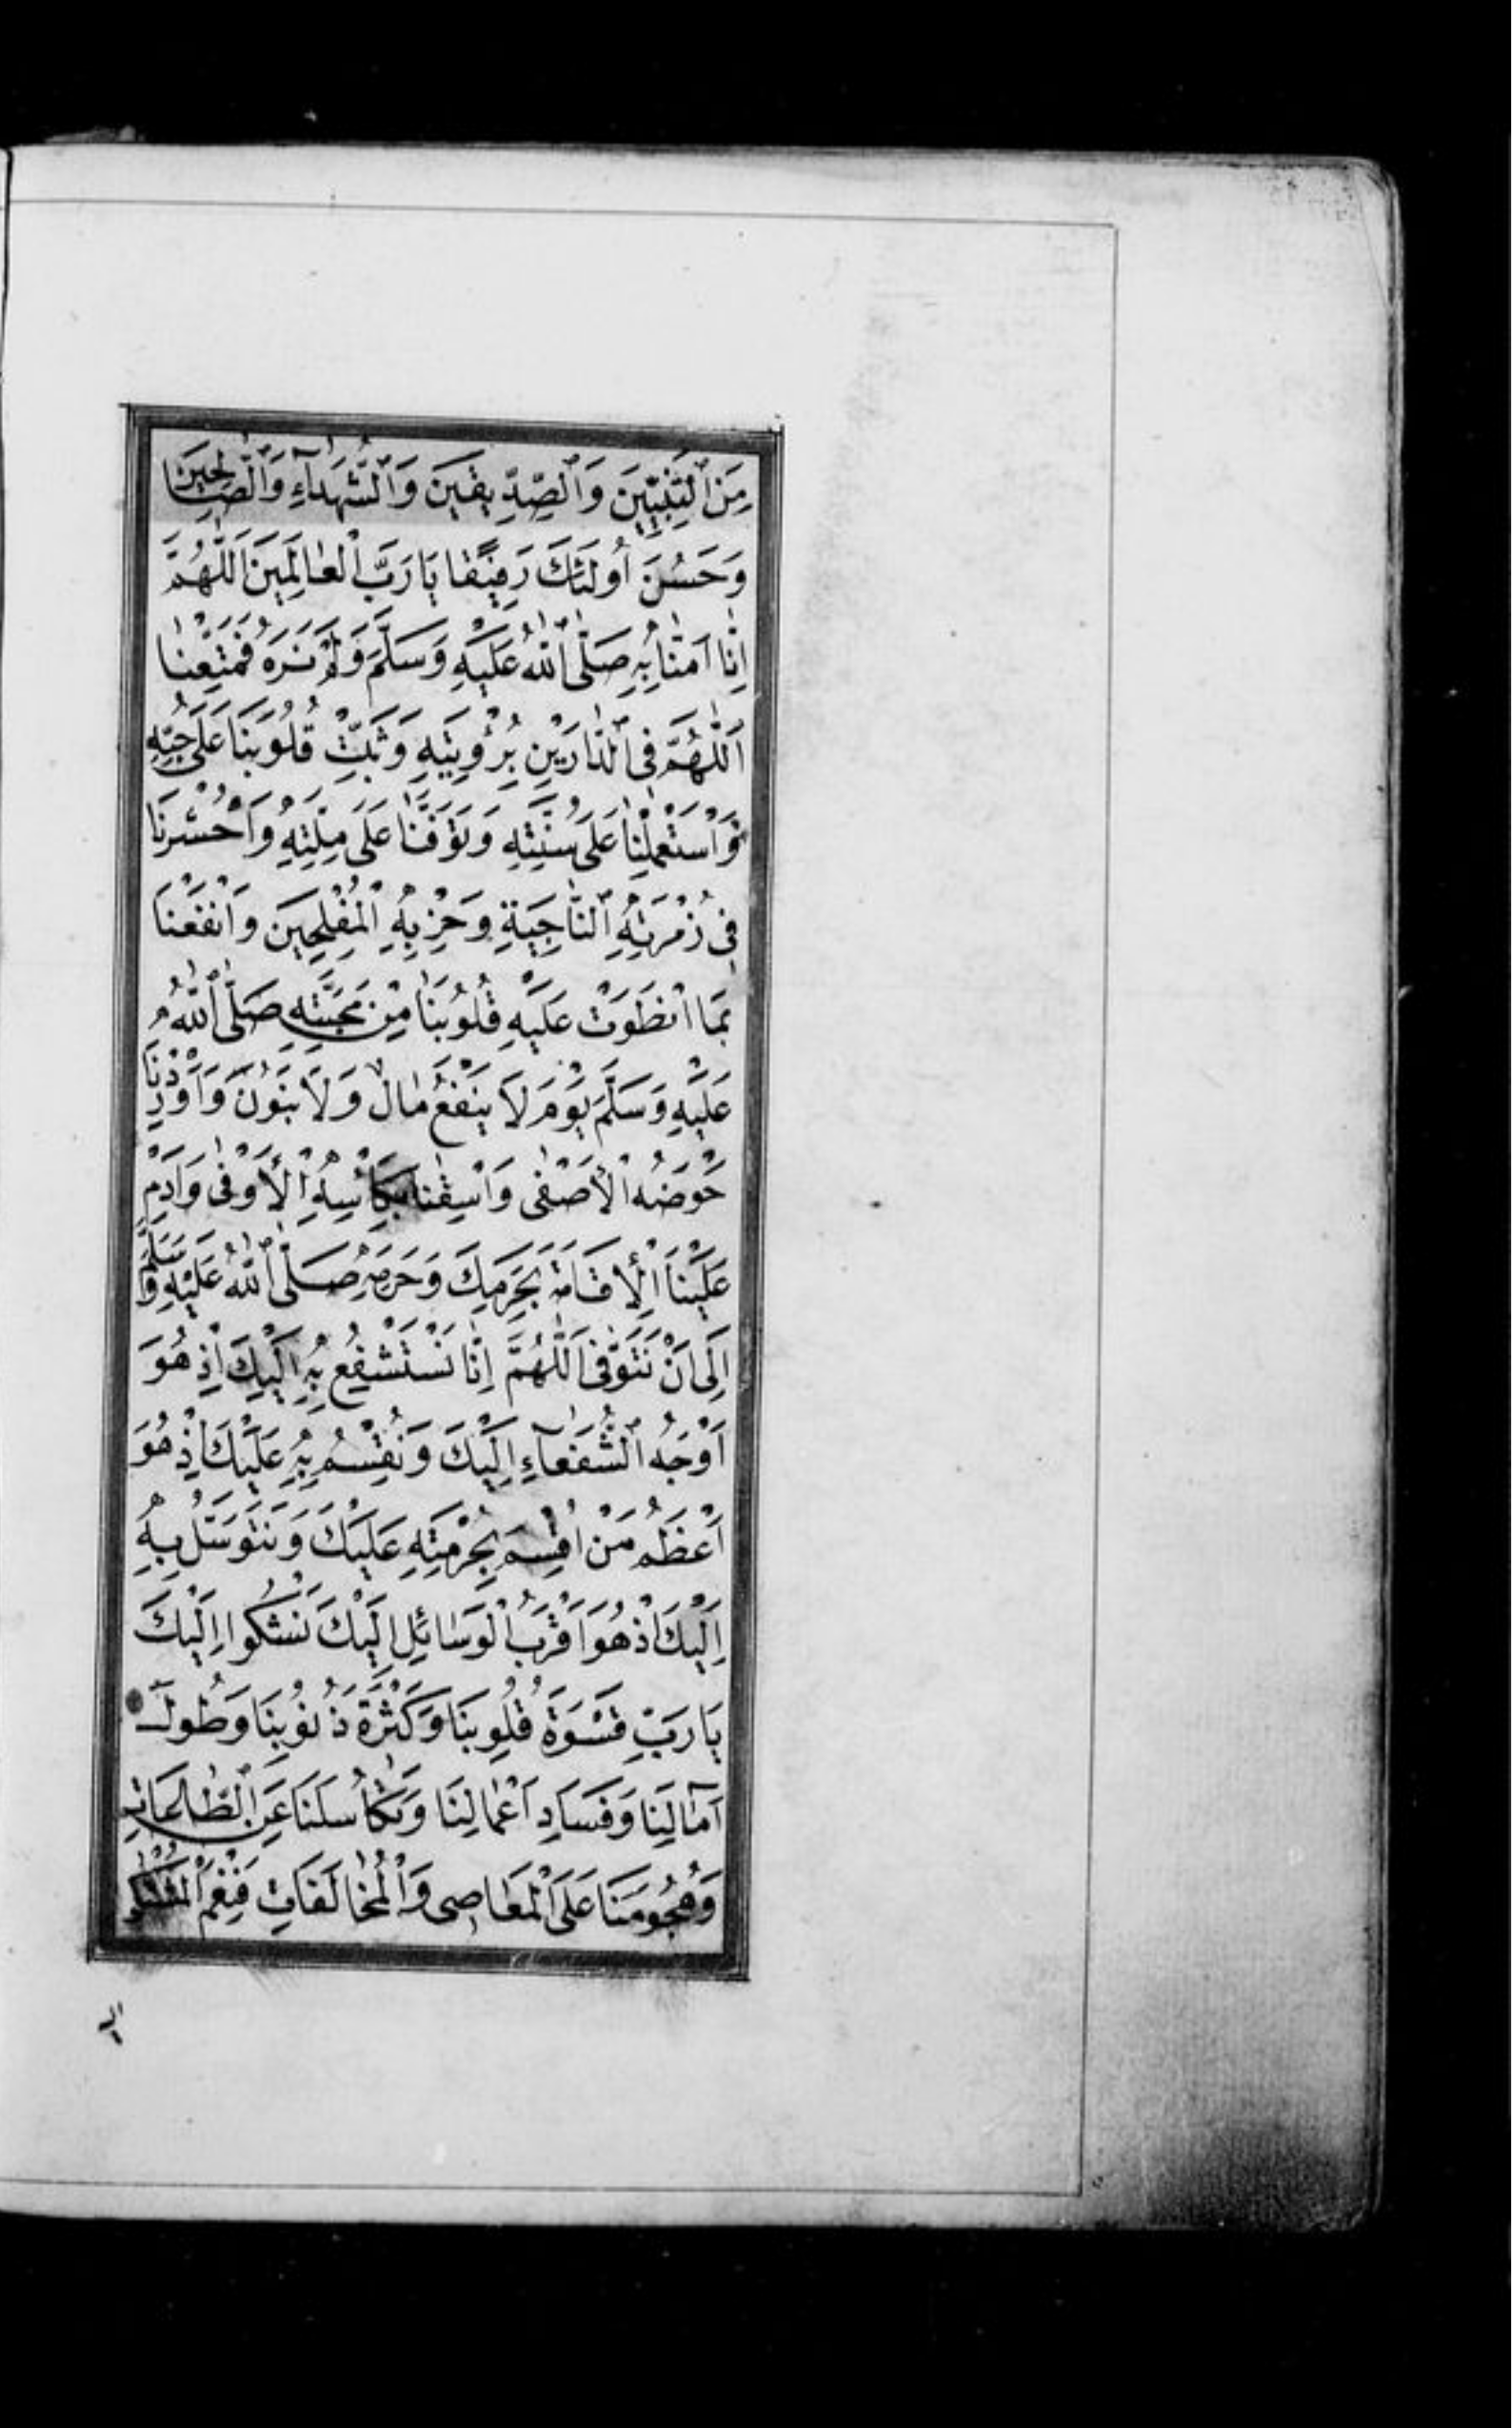 مِنَ ٱلنَّبِيّٖنَ وَٱلصِّدِّيقٖينَ وَٱلشُّهَدَآءِ وَٱلصَّالِحٖينَ
وَحَسُنَ أُولٰئِكَ رَفٖيقًا يَا رَبَّ ٱلْعَالَمٖينَ اَللّٰهُمَّ
اِنَّا اٰمَنَّا بِهٖ صَلَّى ٱللّٰهُ عَلَيْهِ وَسَلَّمَ وَلَمْ نَرَهُ فَمَتِّعْنَا
اَللّٰهُمَّ فِى ٱلدَّارَيْنِ بِرُؤْيَتِهٖ وَثَبِّتْ قُلُوبَنَا عَلٰى مَحَبَّتِهٖ
وَٱسْتَعْمِلْنَا عَلٰى سُنَّتِهٖ وَتَوَفَّنَا عَلٰى مِلَّتِهٖ وَٱحْشُرْنَا
فٖى زُمْرَتِهِ ٱلنَّاجِيَةِ وَحِزْبِهِ ٱلْمُفْلِحٖينَ وَٱنْفَعْنَا
بِمَا ٱنْطَوَتْ عَلَيْهِ قُلُوبُنَا مِنْ مَحَبَّتِهٖ صَلَّى ٱللّٰهُ
عَلَيْهِ وَسَلَّمَ يَوْمَ لَا يَنْفَعُ مَالٌ وَلَا بَنُونَ وَأَوْرِدْنَا
حَوْضَهُ ٱلْأَصْفٰى وَٱسْقِنَا بِكَأْسِهِ ٱلْأَوْفٰى وَأَدِمْ
عَلَيْنَا ٱلْإِقَامَةَ بِحَرَمِكَ وَحَرَمِهٖ صَلَّى ٱللّٰهُ عَلَيْهِ وَسَلَّمَ
اِلٰى اَنْ نَتَوَفّٰى اَللّٰهُمَّ اِنَّا نَسْتَشْفِعُ بِهٖ اِلَيْكَ اِذْ هُوَ
اَوْجَهُ ٱلشُّفَعَآءِ اِلَيْكَ وَنُقْسِمُ بِهٖ عَلَيْكَ اِذْ هُوَ
اَعْظَمُ مَنْ اُقْسِمَ بِحُرْمَتِهٖ عَلَيْكَ وَنَتَوَسَّلُ بِهٖ
اِلَيْكَ اِذْ هُوَ اَقْرَبُ ٱلْوَسَائِلِ اِلَيْكَ نَشْكُوا اِلَيْكَ
يَا رَبِّ قَسْوَةَ قُلُوبِنَا وَكَثْرَةَ ذُنُوبِنَا وَطُولَ
اٰمَالِنَا وَفَسَادِ اَعْمَالِنَا وَتَكَاسُلَنَا عَنِ ٱلطَّاعَاتِ
وَهُجُومَنَا عَلَى ٱلْمَعَاصٖى وَٱلْمُخَالَفَاتِ فَنِعْمَ ٱلْمُشْتَكٰى